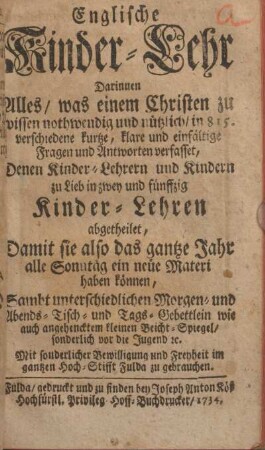 a
Englische
Kinder-Lehr
Darinnen
Alles/ was einem Christen zu
wissen nothwendig und nützlich/ in 815.
verschiedene kurtze, klare und einfältige
Fragen und Antworten verfasset,
Denen Kinder-Lehrern und Kindern
zu Lieb in zwey und fünffzig
Kinder-Lehren
abgetheilet,
Damit sie also das gantze Jahr
alle Sonntäg ein neüe Materi
haben können,
Sambt unterschiedlichen Morgen- und
Abends-Tisch- und Tags-Gebettlein wie
auch angehencktem kleinen Beicht-Spiegel/
sonderlich vor die Jugend ꝛc.
Mit sonderlicher Bewilligung und Freyheit im
gantzen Hoch-Stifft Fulda zu gebrauchen.
Fulda/ gedruckt und zu finden bey Joseph Anton Köß
Hochfürstl. Privileg. Hoff-Buchdrucker/ 1734.